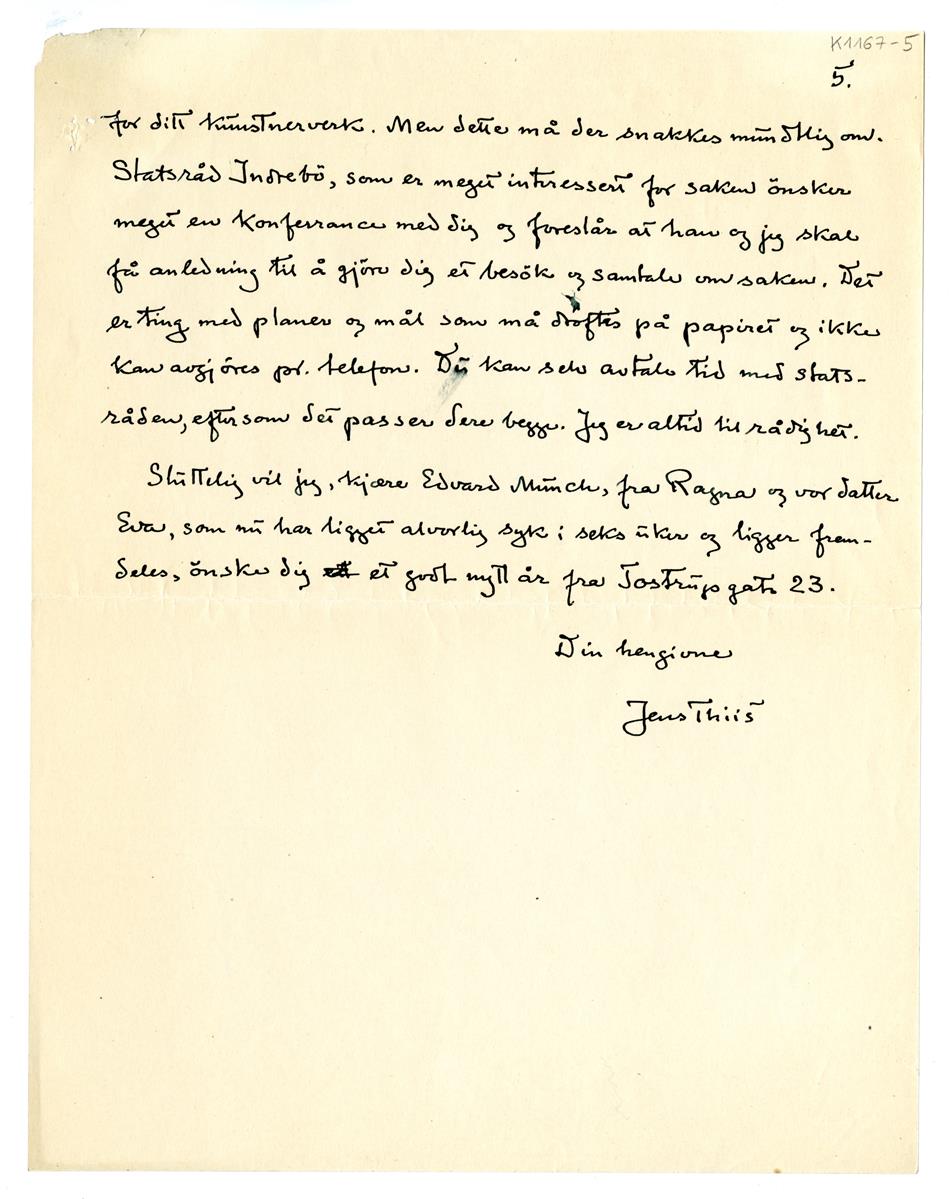 K1167-5
5.
for ditt kunstnerverk. Men dette må der snakkes mundtlig om.
Statsråd Indrebö, som er meget interessert for saken önsker
meget en konferrance med dig og foreslår at han og jeg skal
få anledning til å gjöre dig et besök og samtale om saken. Det
er ting med planer og mål som må dröftes på papiret og ikke
kan avgjöres pr. telefon. Du kan selv avtale tid med stats-
råden, eftersom det passer dere begge. Jeg er altid til rådighet.
Sluttelig vil jeg, kjære Edvard Munch, fra Ragna og vor datter
Eva, som nu har ligget alvorlig syk i seks uker og ligger frem-
deles, önske dig et godt nytt år fra Tostrupgate 23.
Din hengivne
Jens Thiis